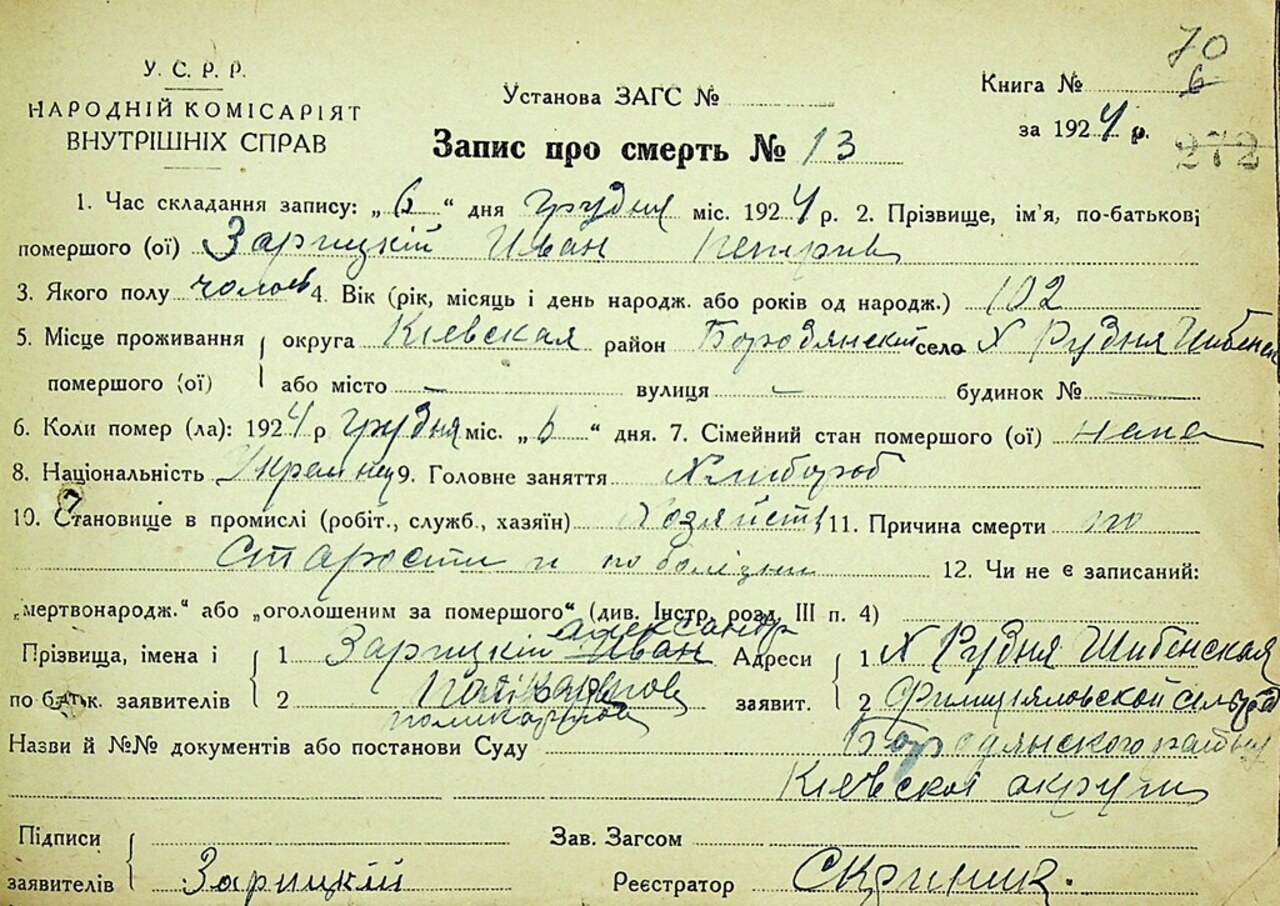 70
У. С. Р. Р.
НАРОДНІЙ КОМІСАРІЯТ
ВНУТРІШНІХ СПРАВ
Установа ЗАГС №
Книга № 6
за 1924 р.
272
Запис про смерть № 13
1. Час складання запису: „6“ дня грудня міс. 1924 р. 2. Прізвище, ім'я, по-батькові
помершого (ої) Зарицкій Иван Петрив
3. Якого полу чолов 4. Вік (рік, місяць і день народж. або років од народж.) 102
5. Місце проживання округа Кіевская район Бородянский село Х Рудня Шибенск
помершого (ої) або місто — вулиця — будинок № —
6. Коли помер (ла): 1924 р грудня міс. „6“ дня. 7. Сімейний стан помершого (ої)
8. Національність Украинец 9. Головне заняття Хлибороб
10. Становище в промислі (робіт., служб., хазяїн) Хозяйств 11. Причина смерти по
Старости и по болізни 12. Чи не є записаний:
„мертвонародж.“ або „оголошеним за помершого“ (див. Інстр. розд. III п. 4)
Александр
Прізвища, імена і 1 Зарицкій Иван Адреси 1 Х Рудня Шибенская
по батьк. заявителів 2 заявит. 2 сельрод
поликарпов
Назви й №№ документів або постанови Суду Бородянского району
Кіевскоі округи
Підписи Зав. Загсом
заявителів Зарицкій Реєстратор Скриник.